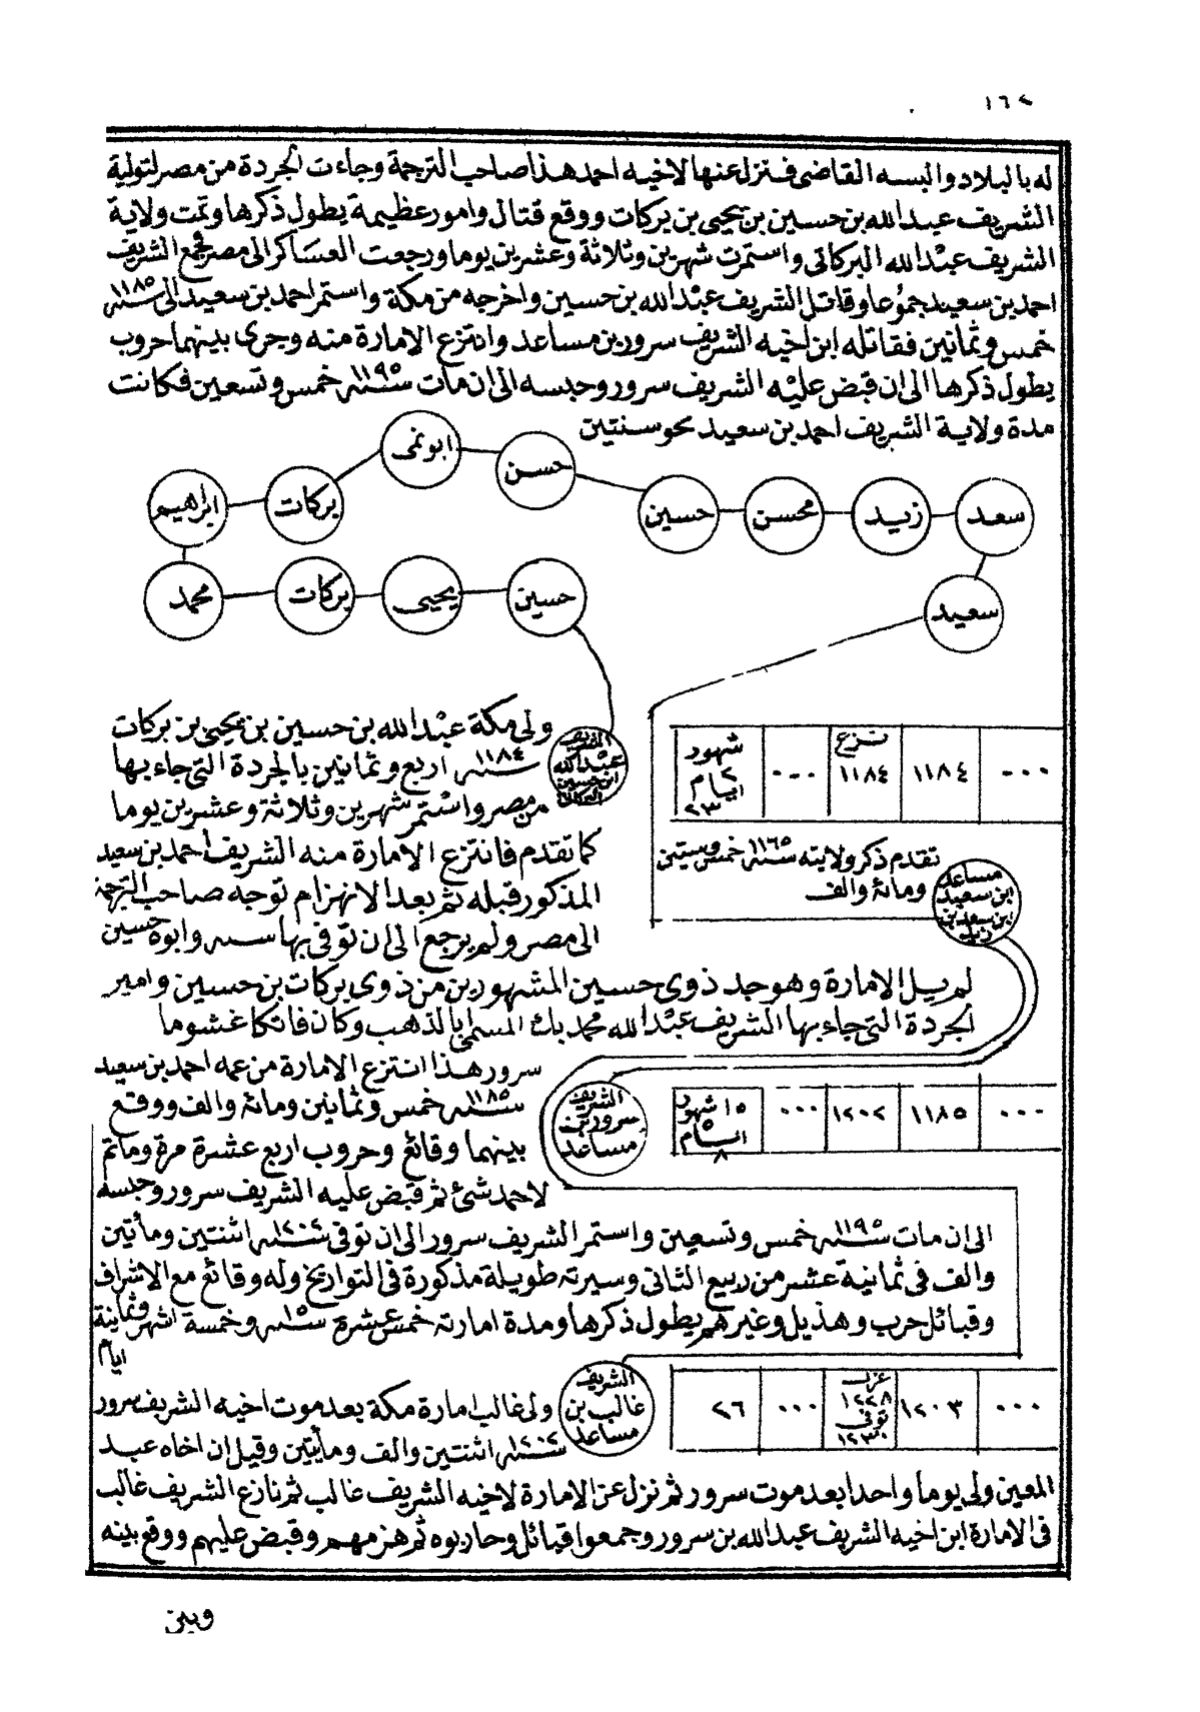 ١٦٢
له بالبلاد والبسه القاضى فنزل عنها لاخيه احمد هذا صاحب الترجمة وجاءت الجردة من مصر لتولية
الشريف عبد الله بن حسين بن يحيى بن بركات ووقع قتال وامور عظيمة يطول ذكرها وتمت ولاية
الشريف عبد الله البركاتى واستمرت شهرين وثلاثة وعشرين يوما ورجعت العساكر الى مصر فجمع الشريف
احمد بن سعيد جموعا وقاتل الشريف عبد الله بن حسين واخرجه من مكة واستمر احمد بن سعيد الى سنة ١١٨٥
خمس وثمانين فقاتله ابن اخيه الشريف سرور بن مساعد وانتزع الامارة منه وجرى بينهما حروب
يطول ذكرها الى ان قبض عليه الشريف سرور وحبسه الى ان مات سنة ١١٩٥ خمس وتسعين فكانت
مدة ولاية الشريف احمد بن سعيد نحو سنتين
سعد زيد محسن حسين حسن ابونمى بركات ابراهيم
محمد بركات يحيى حسين
سعيد
٠٠٠ ١١٨٤ نزع ١١٨٤ ٠٠٠ شهود ٢ ايام ٢٣
الشريف عبد الله ابن حسين البركاتى
ولى مكة عبد الله بن حسين بن يحيى بن بركات
سنة ١١٨٤ اربع وثمانين بالجردة التى جاء بها
من مصر واستمر شهرين وثلاثة وعشرين يوما
كما تقدم فانتزع الامارة منه الشريف احمد بن سعيد
المذكور قبله ثم بعد الانهزام توجه صاحب الترجمة
الى مصر ولم يرجع الى ان توفى بها سنة وابوه حسين
لم يل الامارة وهو جد ذوى حسين المشهورين من ذوى بركات بن حسين وامير
الجردة التى جاء بها الشريف عبد الله محمد بك المسمى بالذهب وكان فاتكا غشوما
مساعد ابن سعيد ابن سعد بن زيد
تقدم ذكر ولايته سنة ١١٦٥ خمس وستين
ومائة والف
٠٠٠ ١١٨٥ ١٢٠٢ ٠٠٠ ١٥ شهود ٥ ايام ٨
الشريف سرور بن مساعد
سرور هذا انتزع الامارة من عمه احمد بن سعيد
سنة ١١٨٥ خمس وثمانين ومائة والف ووقع
بينهما وقائع وحروب اربع عشرة مرة وماتم
لاحمد شئ ثم قبض عليه الشريف سرور وحبسه
الى ان مات سنة ١١٩٥ خمس وتسعين واستمر الشريف سرور الى ان توفى سنة ١٢٠٢ اثنتين ومأتين
والف فى ثمانية عشر من ربيع الثانى وسيرته طويلة مذكورة فى التواريخ وله وقائع مع الاشراف
وقبائل حرب وهذيل وغيرهم يطول ذكرها ومدة امارته خمس عشرة سنة ١٥ وخمسة اشهر وثمانية
ايام
٠٠٠ ١٢٠٣ عزل ١٢٢٨ توفى ١٢٣٠ ٠٠٠ ٢٦
الشريف غالب بن مساعد
ولى غالب امارة مكة بعد موت اخيه الشريف سرور
سنة ١٢٠٢ اثنتين والف ومأيتين وقيل ان اخاه عبد
المعين ولى يوما واحدا بعد موت سرور ثم نزل عن الامارة لاخيه الشريف غالب ثم نازع الشريف غالب
فى الامارة ابن اخيه الشريف عبد الله بن سرور وجمعوا قبائل وحاربوه ثم هزمهم وقبض عليهم ووقع بينه
وبين